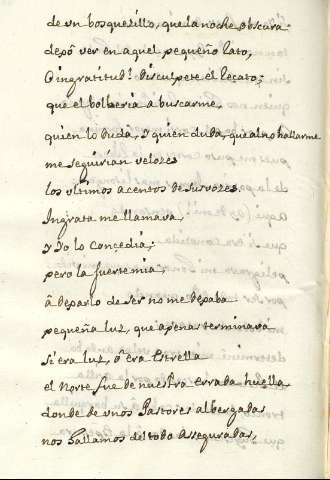 de vn bosquecillo, que la noche obscura
depô ver en aquel pequeño rato,
O ingratitud! disculpete el recato;
que el bolberia a buscarme,
quien lo duda, y quien duda, que al no hallarme
me seguirían velozes
los vltimos acentos de sus vozes,
Ingrata me llamava,
y Yo lo concedia;
pero la suerte mia
â deparlo de ser no me depaba
pequeña luz, que apenas terminava
si era luz, ô era Estrella
el Norte fue de nuestra errada huella
donde de vnos Pastores albergadas
nos hallamos del todo aseguradas,